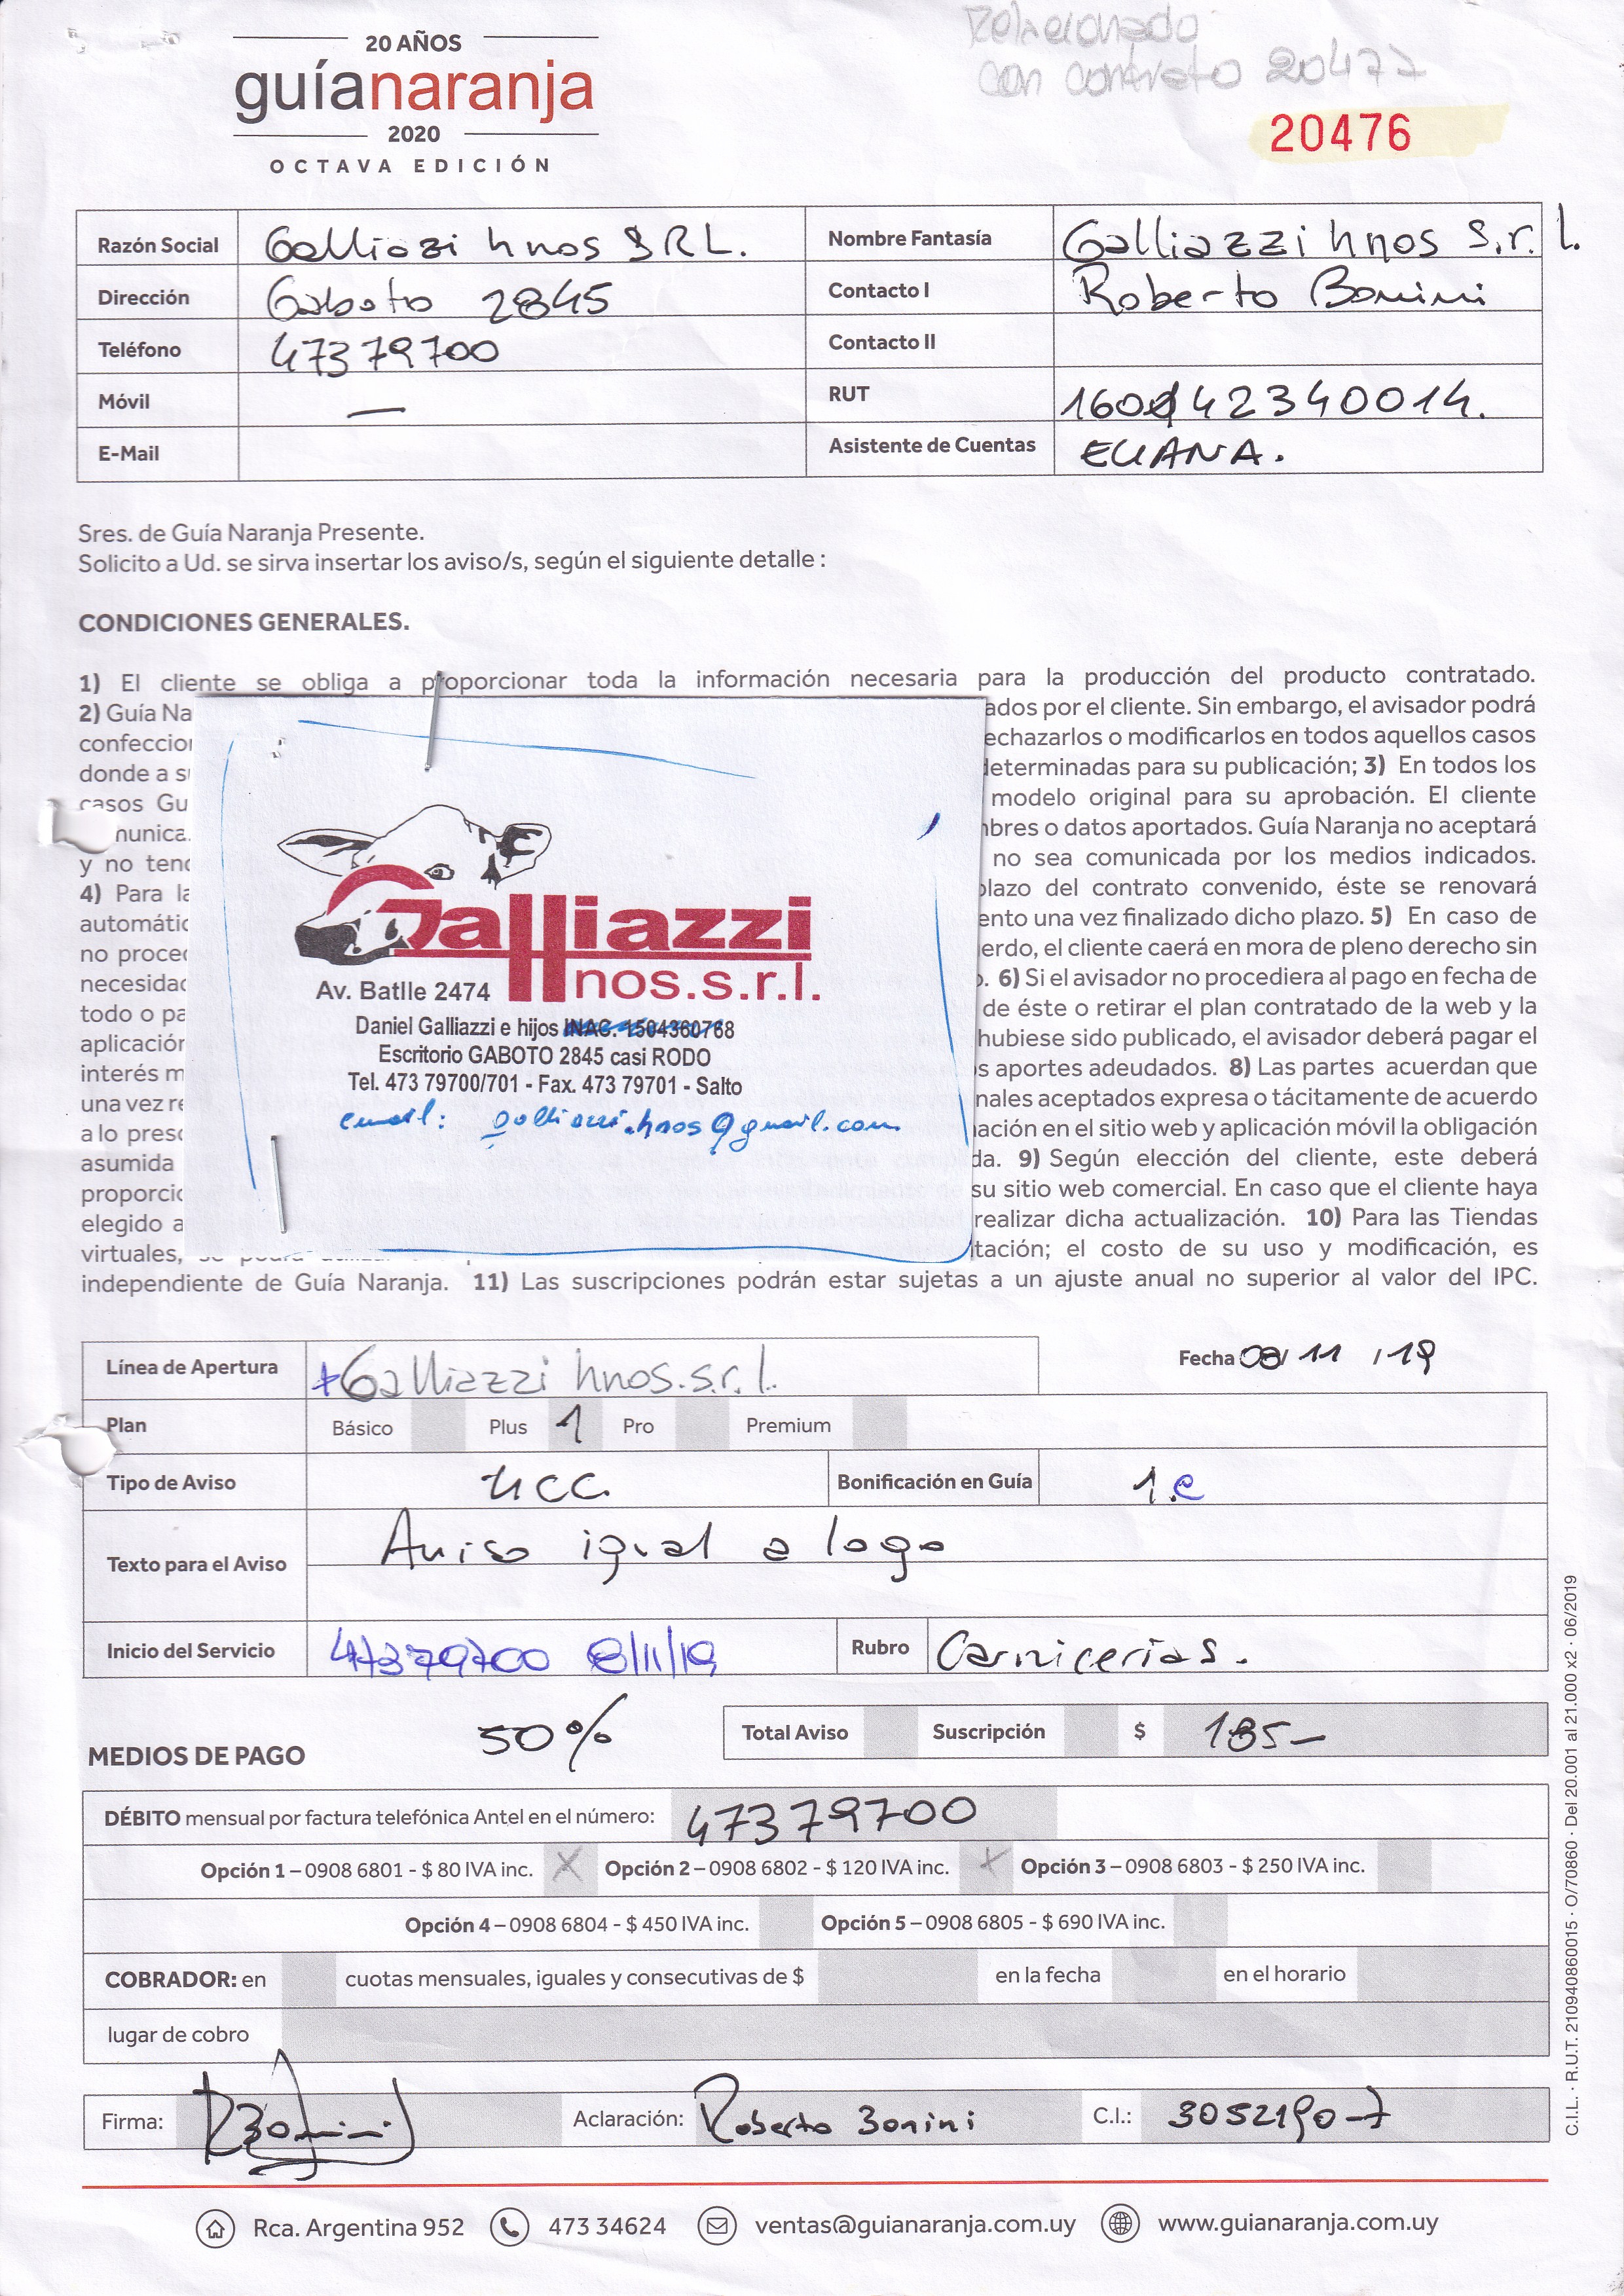 Relacionado
con contrato 20477
20 AÑOS
guíanaranja
2020
OCTAVA EDICIÓN
20476
Razón Social Galliazi hnos SRL.
Nombre Fantasía Galliazzi hnos s.r.l.
Dirección Gaboto 2845
Contacto I Roberto Bonini
Teléfono 47379700
Contacto II
Móvil —
RUT 160142340014.
E-Mail
Asistente de Cuentas ELIANA.
Sres. de Guía Naranja Presente.
Solicito a Ud. se sirva insertar los aviso/s, según el siguiente detalle :
CONDICIONES GENERALES.
1) El cliente se obliga a proporcionar toda la información necesaria para la producción del producto contratado.
2) Guía Na ados por el cliente. Sin embargo, el avisador podrá
confeccion echazarlos o modificarlos en todos aquellos casos
donde a s determinadas para su publicación; 3) En todos los
casos Gu modelo original para su aprobación. El cliente
munica. nbres o datos aportados. Guía Naranja no aceptará
y no tend no sea comunicada por los medios indicados.
4) Para la plazo del contrato convenido, éste se renovará
automátic ento una vez finalizado dicho plazo. 5) En caso de
no proced erdo, el cliente caerá en mora de pleno derecho sin
necesidad o. 6) Si el avisador no procediera al pago en fecha de
todo o pa de éste o retirar el plan contratado de la web y la
aplicación hubiese sido publicado, el avisador deberá pagar el
interés m s aportes adeudados. 8) Las partes acuerdan que
una vez re nales aceptados expresa o tácitamente de acuerdo
a lo presc ación en el sitio web y aplicación móvil la obligación
asumida da. 9) Según elección del cliente, este deberá
proporcic su sitio web comercial. En caso que el cliente haya
elegido a realizar dicha actualización. 10) Para las Tiendas
virtuales, se podrá utilizar tación; el costo de su uso y modificación, es
independiente de Guía Naranja. 11) Las suscripciones podrán estar sujetas a un ajuste anual no superior al valor del IPC.
Galliazzi
Hnos.s.r.l.
Av. Batlle 2474
Daniel Galliazzi e hijos INAC. 1504360768
Escritorio GABOTO 2845 casi RODO
Tel. 473 79700/701 - Fax. 473 79701 - Salto
email: galliazzi.hnos@gmail.com
Línea de Apertura Galliazzi hnos.s.r.l.
Fecha 08/ 11 / 19
Plan Básico Plus 1 Pro Premium
Tipo de Aviso 4CC
Bonificación en Guía 1.c
Texto para el Aviso Aviso igual a logo
Inicio del Servicio 47379700 8/11/19
Rubro Carnicerías.
50%
Total Aviso Suscripción $ 185—
MEDIOS DE PAGO
DÉBITO mensual por factura telefónica Antel en el número: 47379700
Opción 1 – 0908 6801 - $ 80 IVA inc. X Opción 2 – 0908 6802 - $ 120 IVA inc. X Opción 3 – 0908 6803 - $ 250 IVA inc.
Opción 4 – 0908 6804 - $ 450 IVA inc. Opción 5 – 0908 6805 - $ 690 IVA inc.
COBRADOR: en cuotas mensuales, iguales y consecutivas de $ en la fecha en el horario
lugar de cobro
Firma: RBonini Aclaración: Roberto Bonini C.I.: 3052190-7
Rca. Argentina 952 473 34624 ventas@guianaranja.com.uy www.guianaranja.com.uy
C.I.L. · R.U.T. 210940860015 · O/70860 · Del 20.001 al 21.000 x2 · 06/2019